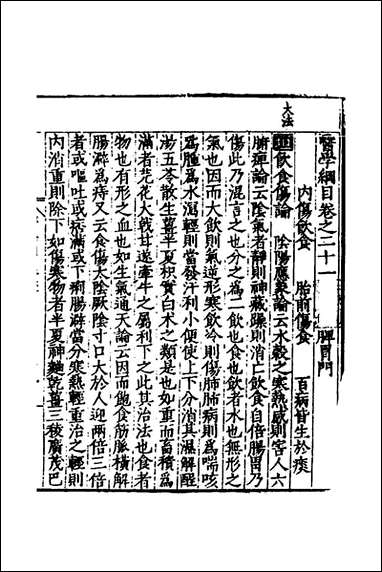 醫學綱目卷之二十一 脾胃門
內傷飲食 胎前傷食 百病皆生於痰
大法
飲食傷論 陰陽應象論云水穀之寒熱感則害人六
腑痺論云陰氣者靜則神藏躁則消亡飲食自倍腸胃乃
傷此乃混言之也分之為二飲也食也飲者水也無形之
氣也因而大飲則氣逆形寒飲冷則傷肺肺病則為喘咳
為腫為水瀉輕則當發汗利小便使上下分消其濕解酲
湯五苓散生薑半夏枳實白术之類是也如重而畜積為
滿者芫花大戟甘遂牽牛之屬利下之此其治法也食者
物也有形之血也如生氣通天論云因而飽食筋脈橫解
腸澼為痔又云食傷太陰厥陰寸口大於人迎兩倍三倍
者或嘔吐或痞滿或下痢腸澼當分寒熱輕重治之輕則
內消重則除下如傷寒物者半夏神麯乾薑三稜廣茂巴